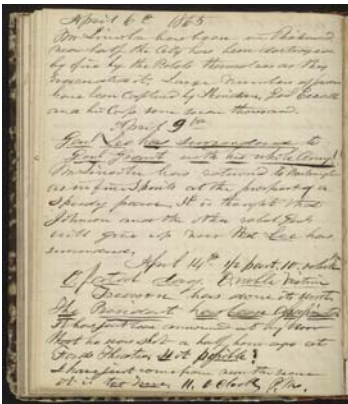 April 6th 1865
Mr Lincoln has been in Richmond
near half the City has been destroyed
by fire by the Rebels themselves as they
evacuated it. Large numbers of
have been captured by Sheridan, Genl Ewell
and his Corps some seven thousand.
April 9th
Genl Lee has surrendered to
Genl Grant with his whole Army!
Mr Lincoln has returned to Washington
as in fine Spirits at the prospect of a
Speedy peace. It is thought that
Johnson and the other rebel Genls
will give up now that Lee has
surrendered.
April 14th 1/2 past 10 o'clock
O fatal day. O noble Victim
Treason has done its worst
The President has been Assassinated
It has just been announced at my door
that he was shot a half hour ago at
Fords Theatre. Is it possible?
I have just come from near the scene
it is too True. 11 O'Clock P.M.